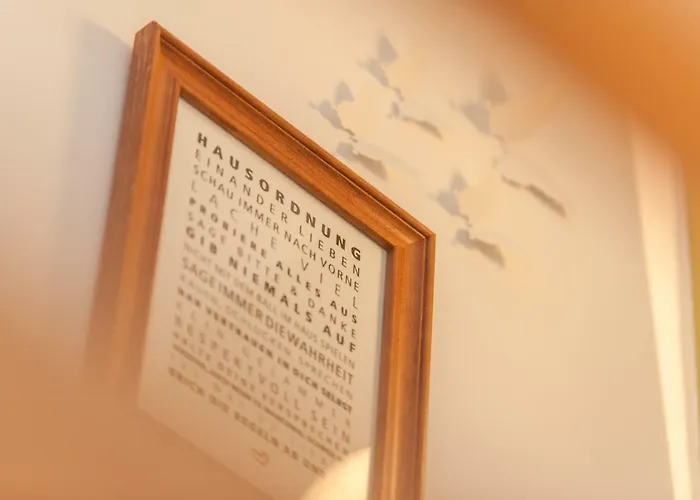 HAUSORDNUNG
EINANDER LIEBEN
SCHAU IMMER NACH VORNE
LACHE VIEL
PROBIERE ALLES AUS
SAGE BITTE & DANKE
GIB NIEMALS AUF
NICHT MIT DEM BALL IM HAUS SPIELEN
SAGE IMMER DIE WAHRHEIT
KAUEN, SCHLUCKEN, SPRECHEN
HAB VERTRAUEN IN DICH SELBST
KEIN GEJAMMER
RESPEKTVOLL SEIN
HALTE DEINE VERSPRECHEN
ERICH DIE REGELN AB UND